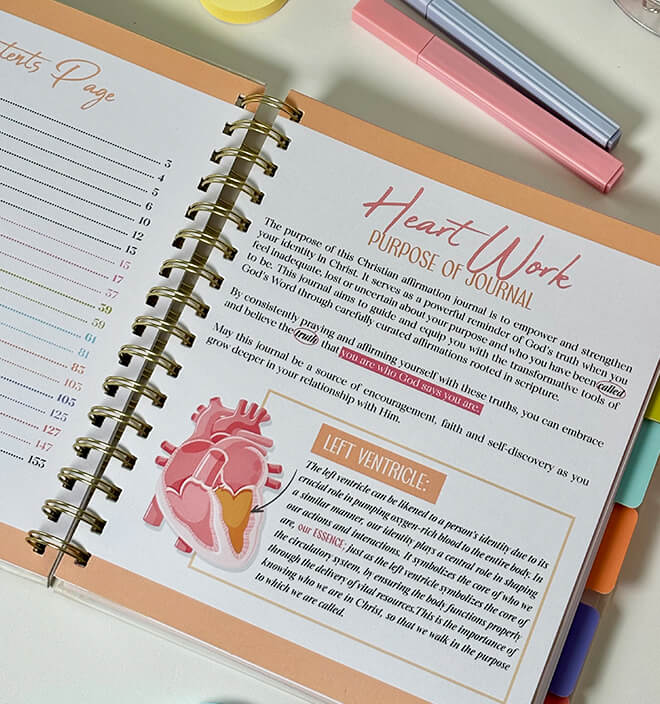 tents Page
3
4
5
6
10
12
13
15
17
37
39
59
61
81
83
103
105
125
127
147
155
Heart Work
PURPOSE OF JOURNAL
The purpose of this Christian affirmation journal is to empower and strengthen
your identity in Christ. It serves as a powerful reminder of God's truth when you
feel inadequate, lost or uncertain about your purpose and who you have been called
to be. This journal aims to guide and equip you with the transformative tools of
God's Word through carefully curated affirmations rooted in scripture.
By consistently praying and affirming yourself with these truths, you can embrace
and believe the truth that you are who God says you are.
May this journal be a source of encouragement, faith and self-discovery as you
grow deeper in your relationship with Him.
LEFT VENTRICLE:
The left ventricle can be likened to a person's identity due to its
crucial role in pumping oxygen-rich blood to the entire body. In
a similar manner, our identity plays a central role in shaping
our actions and interactions. It symbolizes the core of who we
are, our ESSENCE; just as the left ventricle symbolizes the core of
the circulatory system, by ensuring the body functions properly
through the delivery of vital resources.This is the importance of
knowing who we are in Christ, so that we walk in the purpose
to which we are called.